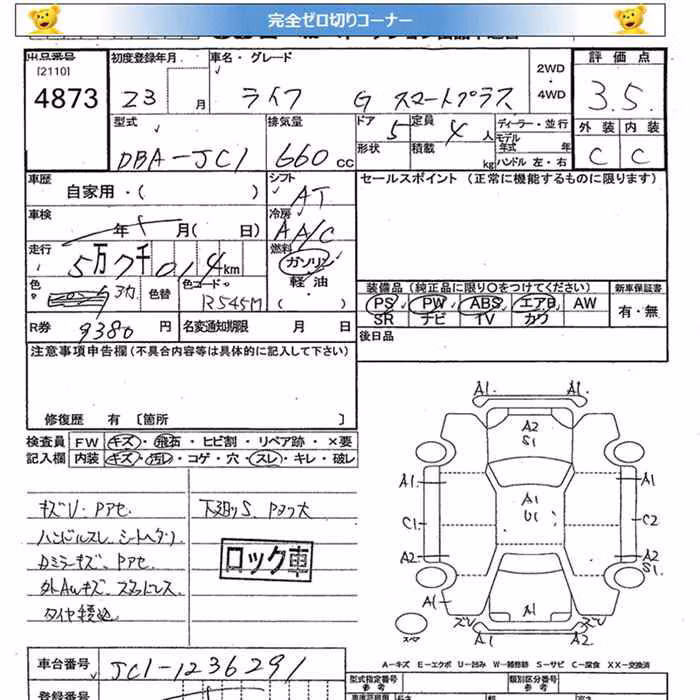 完全ゼロ切りコーナー
出品番号 初度登録年月 車名・グレード 2WD・4WD 評価点
[2110]
4873 23 月 ライフ G スマートプラス 3.5
型式 排気量 ドア 定員 ディーラー・並行 外装 内装
DBA-JC1 660 CC 5 4人 モデル年式 年 C C
形状 積載 kg ハンドル 左・右
車歴 シフト セールスポイント (正常に機能するものに限ります)
自家用・( ) AT
車検 冷房
年 月( 日) AA/C
走行 燃料
5万7千014km ガソリン・軽油・( )
色 色替 色コード 装備品 (純正品に限り○をつけてください) 新車保証書
B545M PS PW ABS エアB AW 有・無
SR ナビ TV カワ
R券 9380円 名変通知期限 月 日 後日品
注意事項申告欄 (不具合内容等は具体的に記入して下さい)
修復歴 有 [箇所 ]
検査員 FW キズ・飛石・ヒビ割・リペア跡・×要
記入欄 内装 キズ・汚レ・コゲ・穴・スレ・キレ・破レ
キズU・Pアセ 下廻りS、Pフ大
ハンドルスレ シートヘタリ
Dミラーキズ、Pアセ ロック車
外AWキズ スタッドレス
タイヤ積込
A1. A1.
A2
S1
A1 A1 A1
C1 U1 C2
A2 A2
S1
A1 A1
スペア ズU ズU
A1 A2
A-キズ E-エクボ U-凹み W-補修跡 S-サビ C-腐食 XX-交換済
車台番号 JC1-1236291
型式指定番号 参考 類別区分番号 参考
登録番号